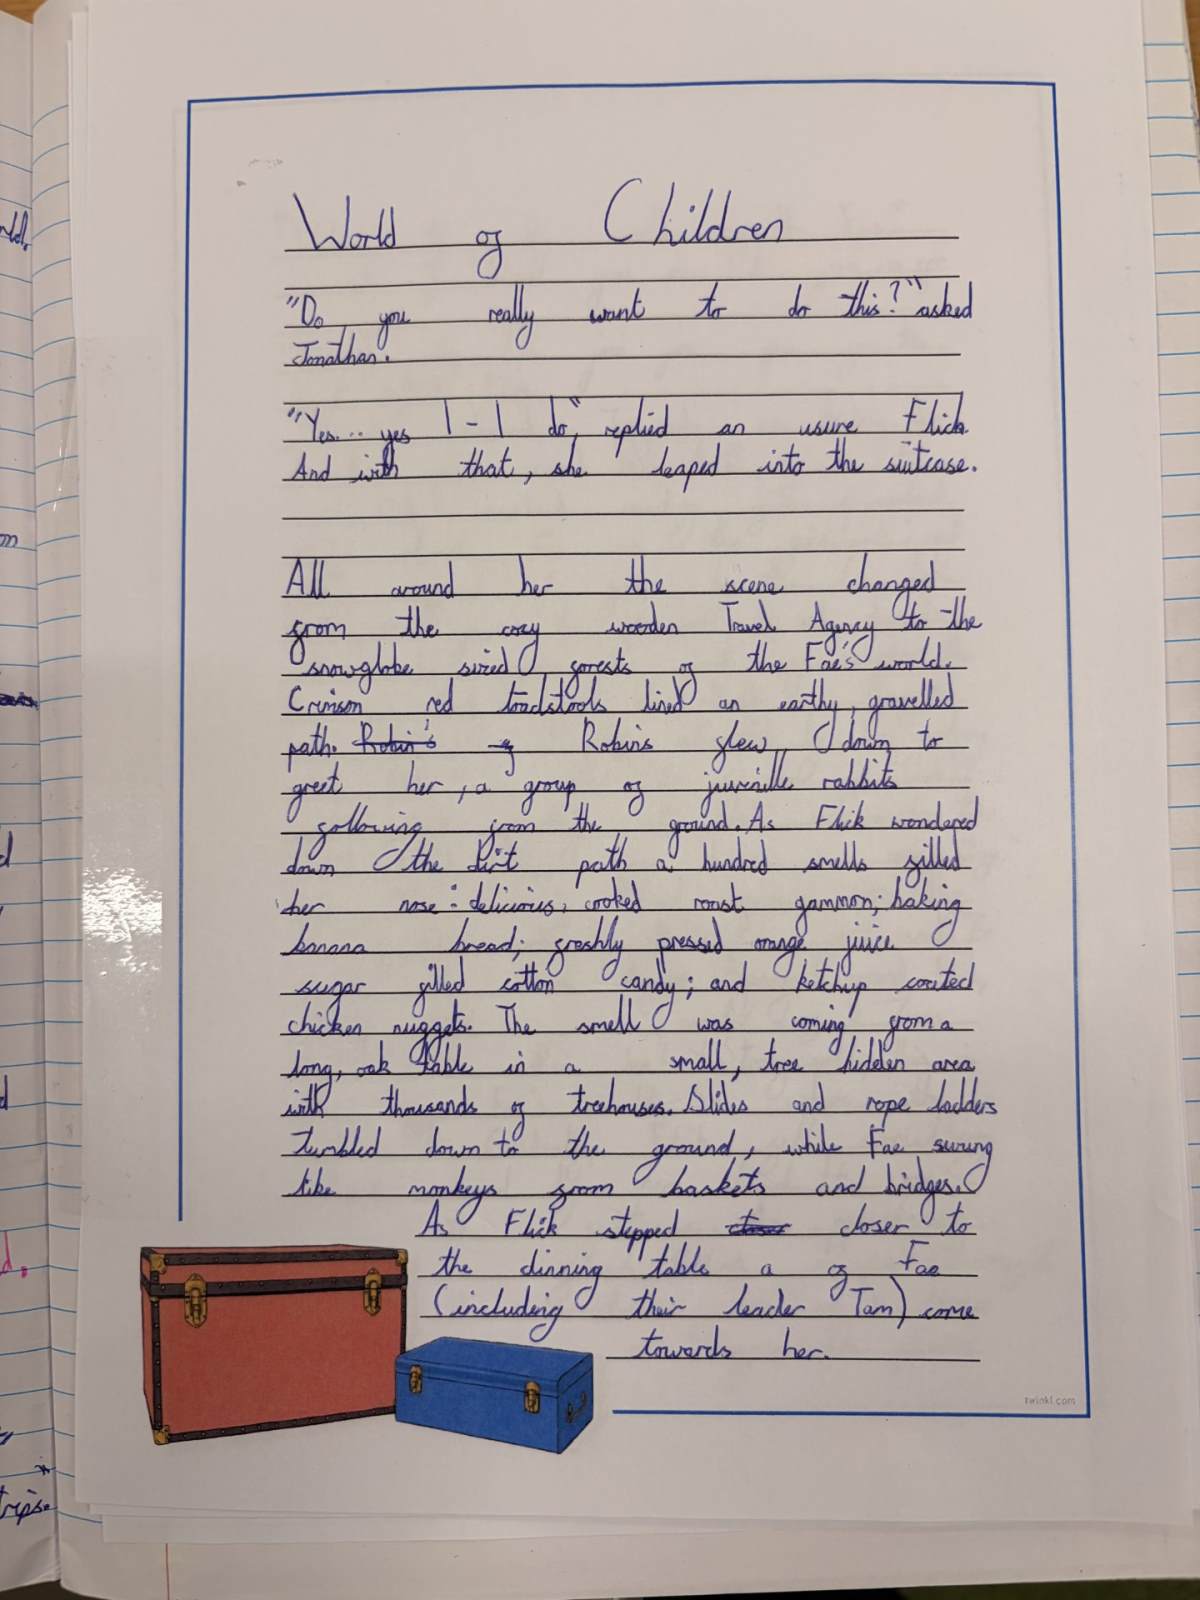 World of Children
"Do you really want to do this?" asked
Jonathan.
"Yes... yes I - I do", replied an usure Flick.
And with that, she leaped into the suitcase.
All around her the scene changed
from the cozy wooden Travel Agency to the
snowglobe sized forests of the Fae's world.
Crimson red toadstools lined an earthy, gravelled
path. Robin's Robins flew down to
greet her, a group of juvenille rabbits
following from the ground. As Flick wondered
down the dirt path a hundred smells filled
her nose: delicious, cooked roast gammon; baking
banana bread; freshly pressed orange juice
sugar filled cotton candy; and ketchup coated
chicken nuggets. The smell was coming from a
long, oak table in a small, tree hidden area
with thousands of treehouses. Slides and rope ladders
tumbled down to the ground, while Fae swung
like monkeys from baskets and bridges.
As Flick stepped closer closer to
the dinning table a of Fae
(including their leader Tam) come
towards her.
twinkl.com
trips.